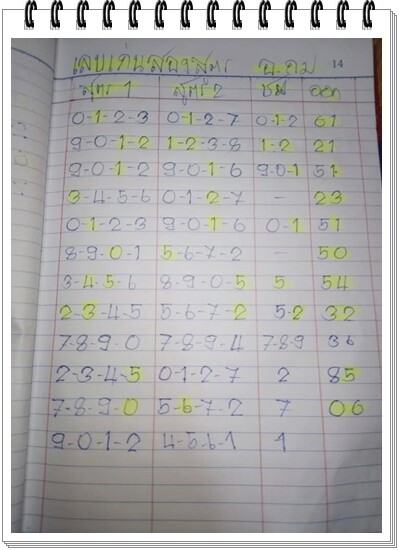 เลขเด่นสองสูตร อ.ถม 14
สูตร 1 สูตร 2 ชน ออก
0-1-2-3 0-1-2-7 0-1-2 61
9-0-1-2 1-2-3-8 1-2 21
9-0-1-2 9-0-1-6 9-0-1 51
3-4-5-6 0-1-2-7 - 23
0-1-2-3 9-0-1-6 0-1 51
8-9-0-1 5-6-7-2 - 50
3-4-5-6 8-9-0-5 5 54
2-3-4-5 5-6-7-2 5-2 32
7-8-9-0 7-8-9-4 7-8-9 36
2-3-4-5 0-1-2-7 2 85
7-8-9-0 5-6-7-2 7 06
9-0-1-2 4-5-6-1 1